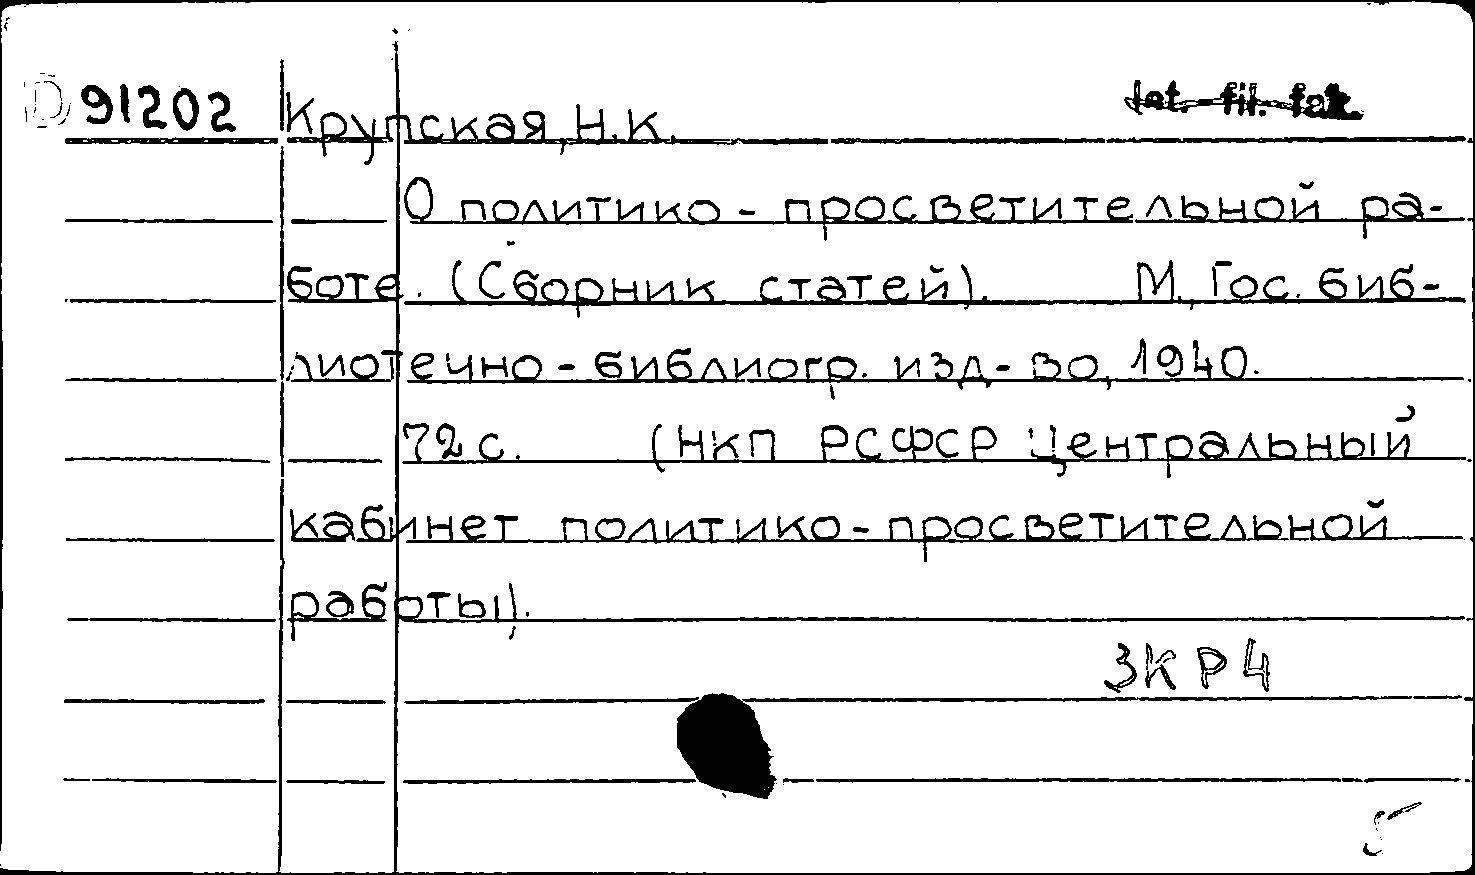 D 91202 Крупская, Н.К. Ist.-fil. fak.
О политико-просветительной ра-
боте. (Сборник статей). М., Гос. биб-
лиотечно-библиогр. изд-во, 1940.
72 с. (НКП РСФСР Центральный
кабинет политико-просветительной
работы).
3КР4
5